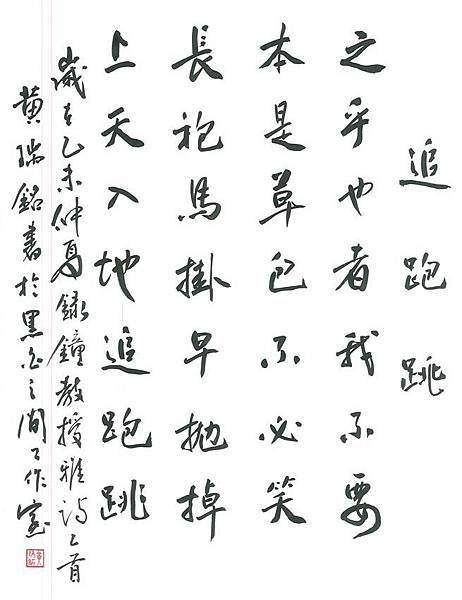 追跑跳
之乎也者我不要
本是草包不必笑
長袍馬掛早拋掉
上天入地追跑跳
歲在乙未仲夏錄鐘教授雅詩乙首
黃瑞銘書於黑白之間工作室